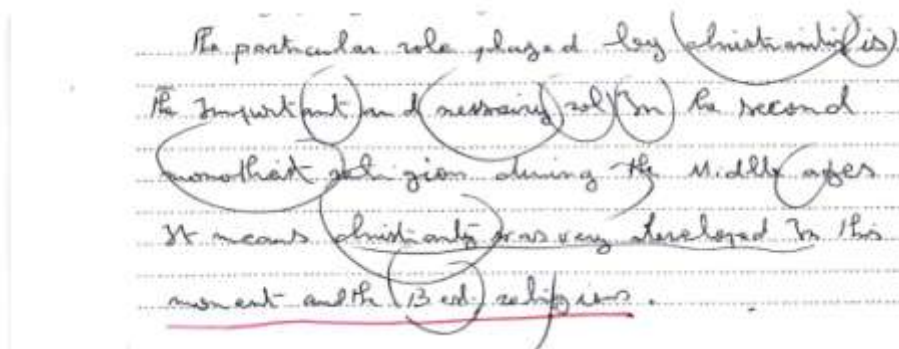 The particular role played by christianity is
the Important and nessairy rol In the second
monotheist religion during the Middle ages
It means christianity was very developed In this
moment and the Best religions.